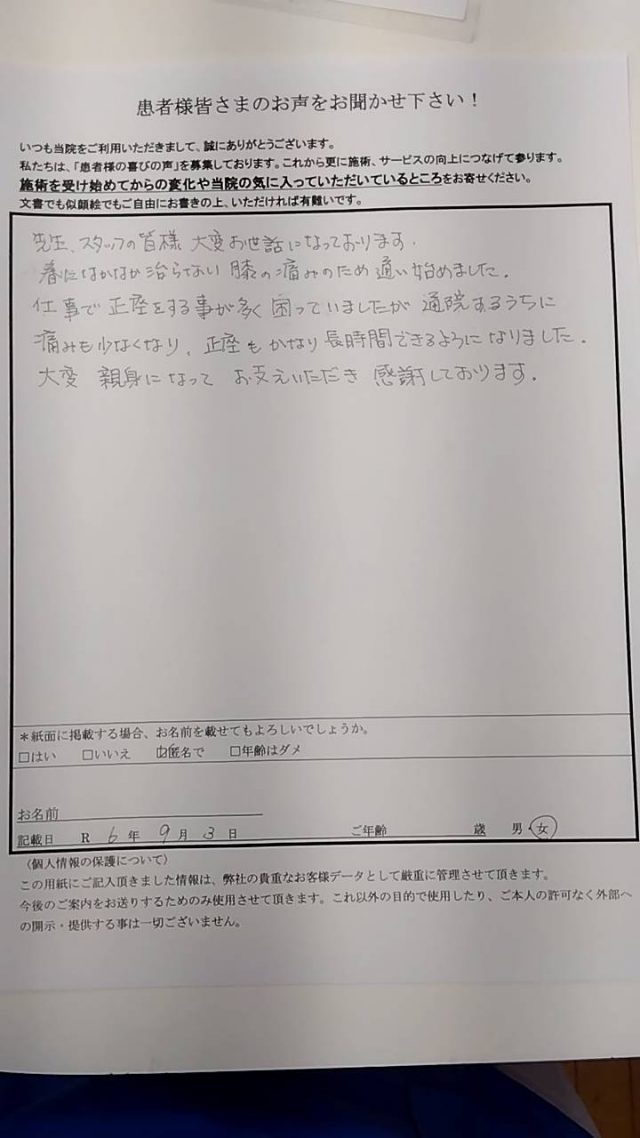 患者様皆さまのお声をお聞かせ下さい!
いつも当院をご利用いただきまして、誠にありがとうございます。
私たちは、「患者様の喜びの声」を募集しております。これから更に施術、サービスの向上につなげて参ります。
施術を受け始めてからの変化や当院の気に入っていただいているところをお寄せください。
文書でも似顔絵でもご自由にお書きの上、いただければ有難いです。
先生、スタッフの皆様 大変お世話になっております.
春になかなか治らない 膝の痛みのため 通い始めました.
仕事で 正座をする事が多く 困っていましたが 通院するうちに
痛みも少なくなり、正座も かなり長時間できるようになりました.
大変 親身になって お支えいただき 感謝しております.
*紙面に掲載する場合、お名前を載せてもよろしいでしょうか。
□はい □いいえ ☑匿名で □年齢はダメ
お名前
記載日 R 6 年 9 月 3 日 ご年齢 歳 男・女
(個人情報の保護について)
この用紙にご記入頂きました情報は、弊社の貴重なお客様データとして厳重に管理させて頂きます。
今後のご案内をお送りするためのみ使用させて頂きます。これ以外の目的で使用したり、ご本人の許可なく外部へ
の開示・提供する事は一切ございません。